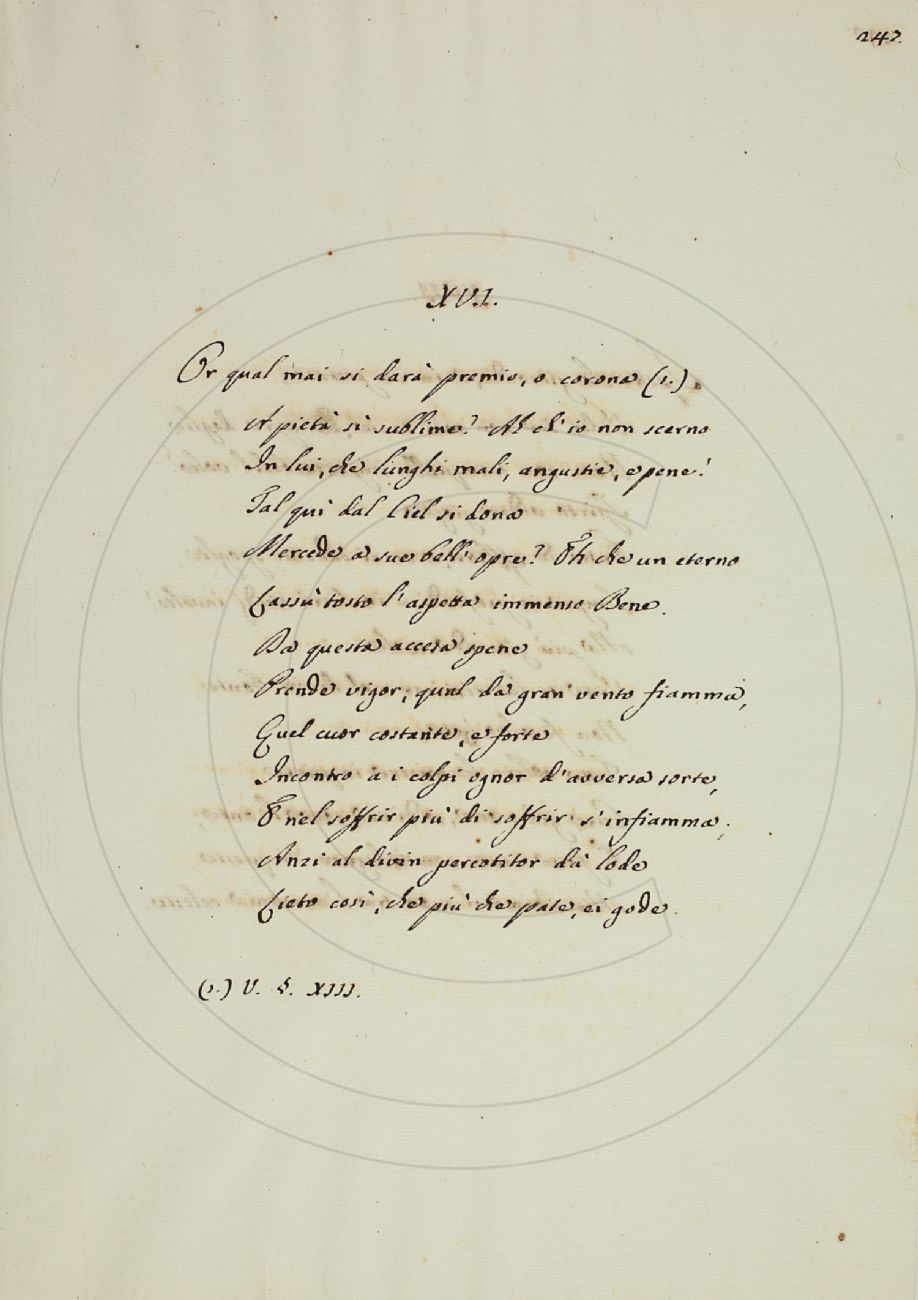 247.
XVI.
Or qual mai si darà premio, o corona (1.)
A pietà sì sublime? Ah ch'io non scerno
In lui, che lunghi mali, angustie, e pene!
Tal quì dal Ciel si dona
Mercede a sue bell'opre? Eh che un eterno
Lassù tosto l'aspetta immenso Bene.
Da questa accesa spene
Prende vigor, qual da gran vento fiamma,
Quel cuor costante, e forte
Incontro a i colpi ognor d'avversa sorte,
E nel soffrir più di soffrir s'infiamma;
Anzi al divin percotitor dà lode
Lieto così, che più che pate, ei gode.
(1.) V. §. XIII.